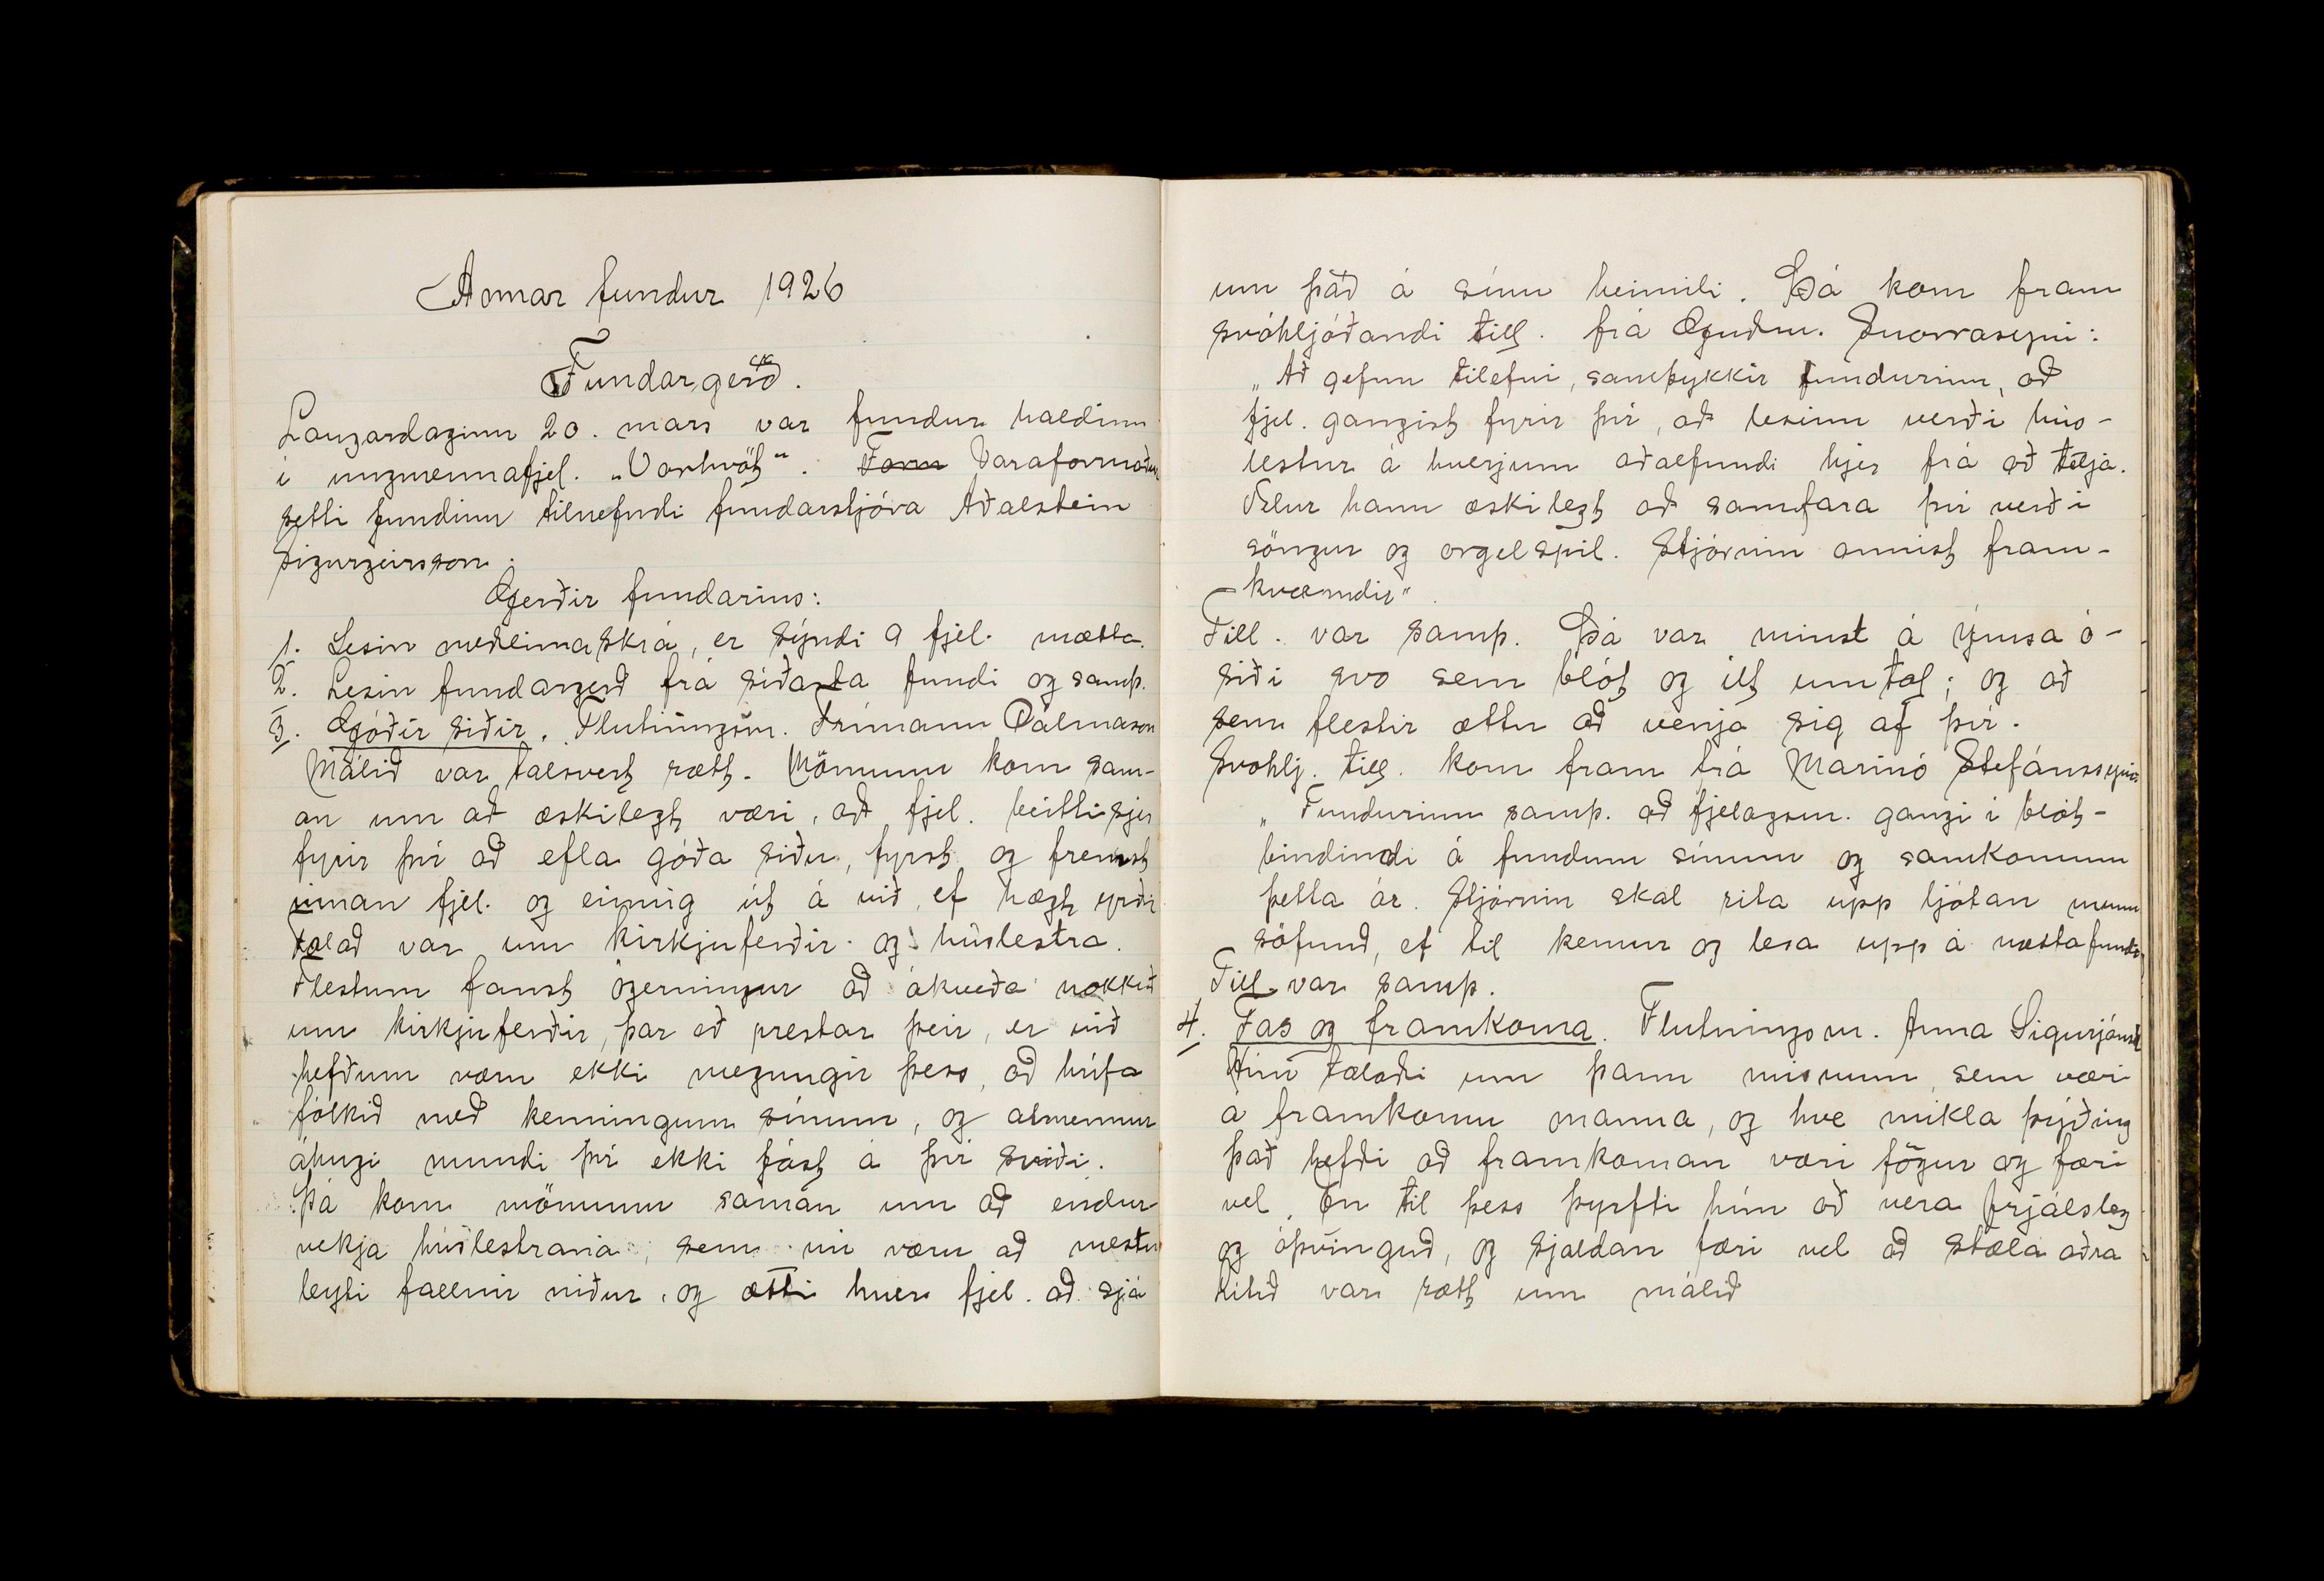 Annar fundur 1926
Fundargerð.
Laugardaginn 20. mars var fundur haldinn
í ungmennafjel. „Vorhvöt". Form Varaformaður
setti fundinn tilnefndi fundarstjóra Aðalstein
Sigurgeirsson.
Gerðir fundarins:
1. Lesin meðlimaskrá, er sýndi 9 fjel. mætta.
2. Lesin fundargerð frá síðasta fundi og samþ.
3. Góðir siðir. Flutningsm. Frímann Pálmason
Málið var talsvert rætt. Mönnum kom sam-
an um að æskilegt væri, að fjel. beitti sjer
fyrir því að efla góða siðu, fyrst og fremst
innan fjel. og einnig út á við, ef hægt yrði
talað var um kirkjuferðir og húslestra.
Flestum fanst ógerningur að ákveða nokkuð
um kirkjuferðir, þar að prestar þeir, er við
hefðum væru ekki megnugir þess, að hrífa
fólkið með kenningum sínum, og almennur
áhugi mundi því ekki fást á því sviði.
Þá kom mönnum saman um að endur
vekja húslestrana, sem nú væru að mestu
leyti fallnir niður, og ætti hver fjel. að sjá
um það á sínu heimili. Þá kom fram
svohljóðandi till. frá Guðm. Snorrasyni:
„Að gefnu tilefni, samþykkir fundurinn, að
fjel. gangist fyrir því, að lesinn verði hús-
lestur á hverjum aðalfundi hjer frá að telja.
Telur hann æskilegt að samfara því verði
söngur og orgelspil. Stjórnin annist fram-
kvæmdir".
Till. var samþ. Þá var minst á ýmsa ó-
siði svo sem blót og ilt umtal; og að
sem flestir ættu að venja sig af því.
Svohlj. till. kom fram frá Marinó Stefánssyni
„Fundurinn samþ. að fjelagsm. gangi í blót-
bindindi á fundum sínum og samkomum
þetta ár. Stjórnin skal rita upp ljótan munn
söfnuð, ef til kemur og lesa upp á næsta fundi
Till. var samþ.
4. Fas og framkoma. Flutningsm. Anna Sigurjónsd
Hún talaði um þann mismun, sem væri
á framkomu manna, og hve mikla þýðing
það hefði að framkoman væri fögur og færi
vel. En til þess þyrfti hún að vera frjálsleg
og óþvinguð, og sjaldan færi vel að stæla aðra
Lítið var rætt um málið